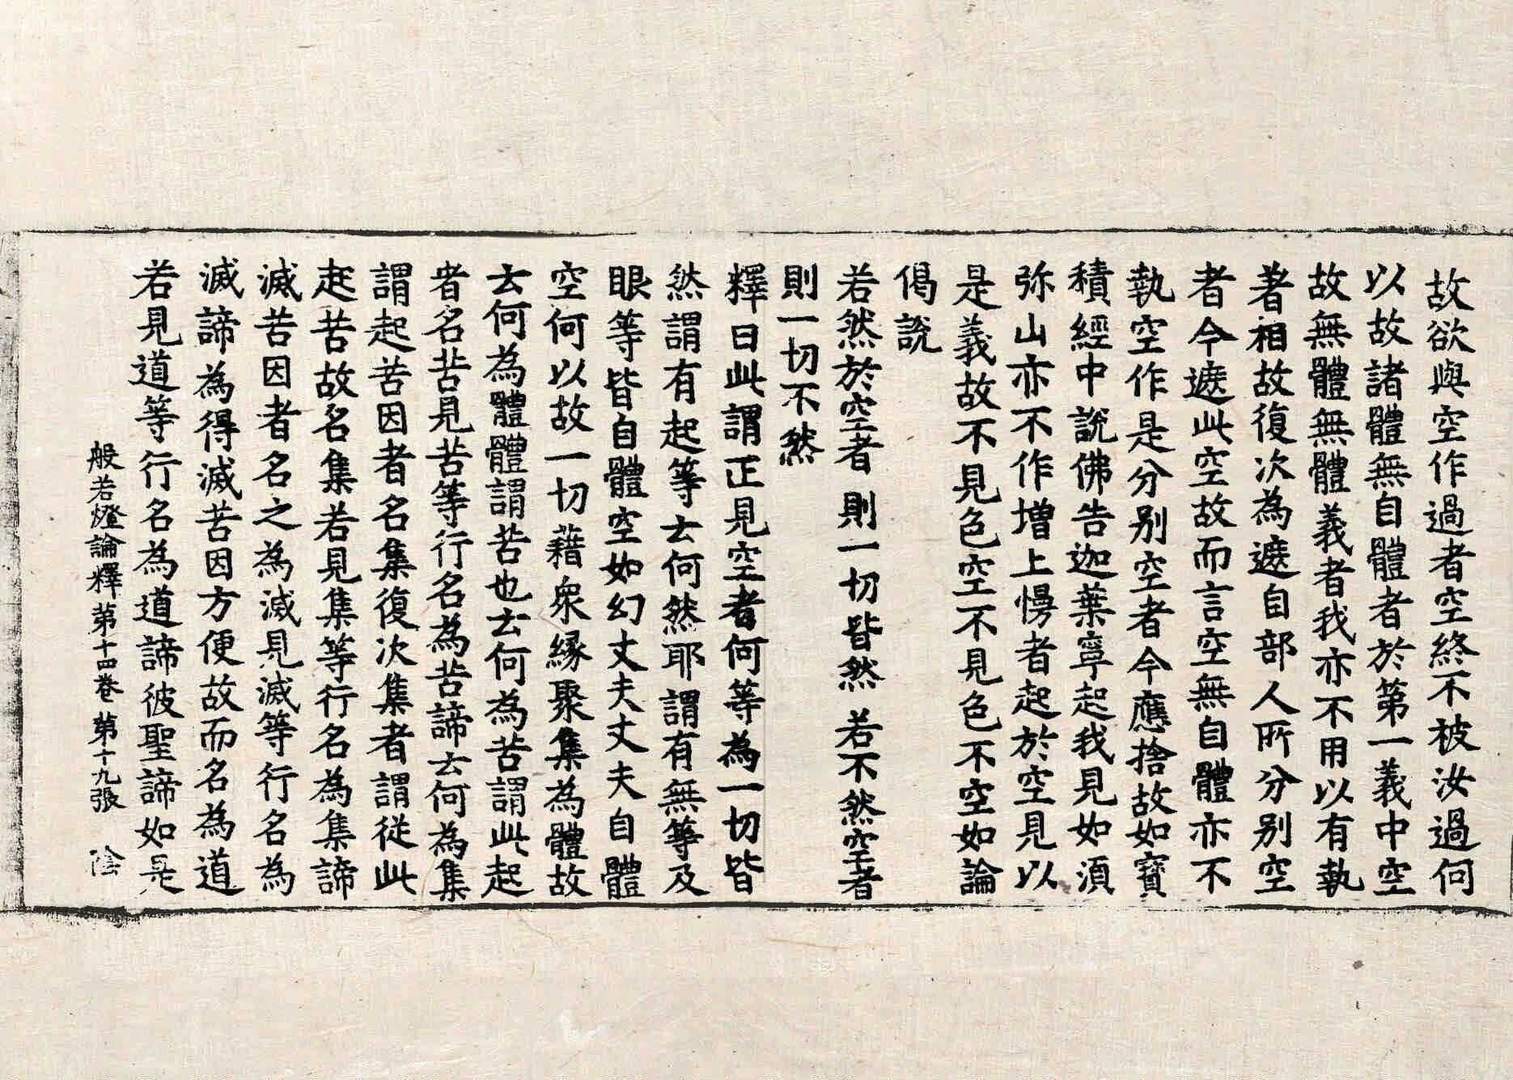 故欲與空作過者空終不被汝過何
以故諸體無自體者於第一義中空
故無體無體義者我亦不用以有執
著相故復次為遮自部人所分別空
者今遮此空故而言空無自體亦不
執空作是分別空者今應捨故如寶
積經中說佛告迦葉寧起我見如湏
弥山亦不作増上慢者起於空見以
是義故不見色空不見色不空如論
偈說
若然於空者 則一切皆然 若不然空者
則一切不然
釋曰此謂正見空者何等為一切皆
然謂有起等去何然耶謂有無等及
眼等皆自體空如幻丈夫丈夫自體
空何以故一切藉衆縁聚集為體故
去何為體體謂苦也去何為苦謂此起
者名苦見苦等行名為苦諦去何為集
謂起苦因者名集復次集者謂從此
起苦故名集若見集等行名為集諦
滅苦因者名之為滅見滅等行名為
滅諦為得滅苦因方便故而名為道
若見道等行名為道諦彼聖諦如是
般若燈論釋第十四卷 第十九張 陰